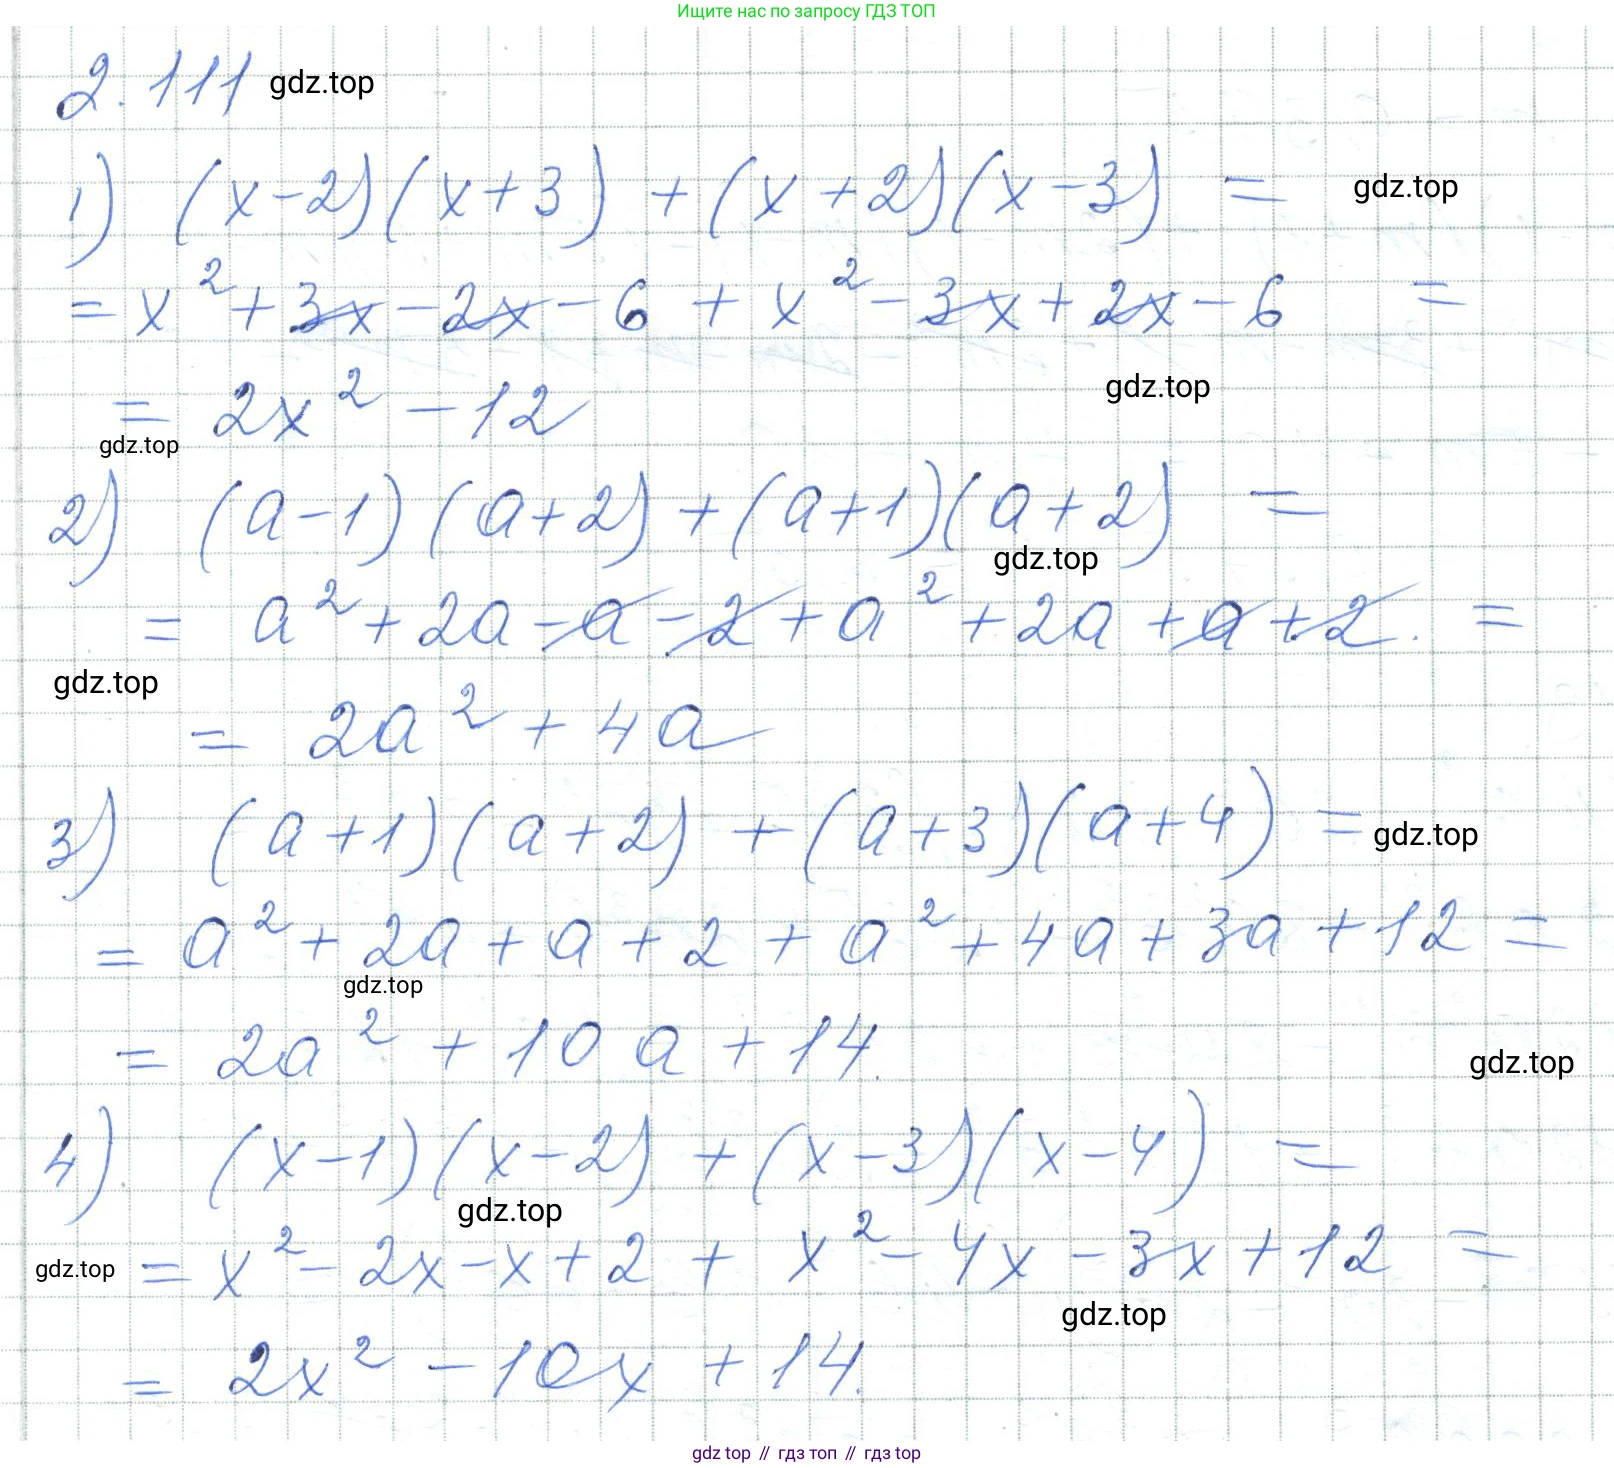 Ищите нас по запросу ГДЗ ТОП
2.111 gdz.top
1) (x-2)(x+3) + (x+2)(x-3) = gdz.top
= x² + 3x - 2x - 6 + x² - 3x + 2x - 6 =
= 2x² - 12 gdz.top
gdz.top
2) (a-1)(a+2) + (a+1)(a+2) =
gdz.top
= a² + 2a - a - 2 + a² + 2a + a + 2. =
gdz.top
= 2a² + 4a
3) (a+1)(a+2) + (a+3)(a+4) = gdz.top
= a² + 2a + a + 2 + a² + 4a + 3a + 12 =
gdz.top
= 2a² + 10a + 14.
gdz.top
4). (x-1)(x-2) + (x-3)(x-4) =
gdz.top
gdz.top = x² - 2x - x + 2 + x² - 4x - 3x + 12 =
gdz.top
= 2x² - 10x + 14.
gdz top // гдз топ // гдз top